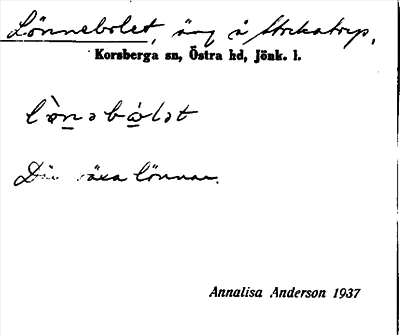 Lönnebolet, äng å Stockatorp,
Korsberga sn, Östra hd, Jönk. l.
lö̀nəbólət
Där växa lönnar.
Annalisa Anderson 1937